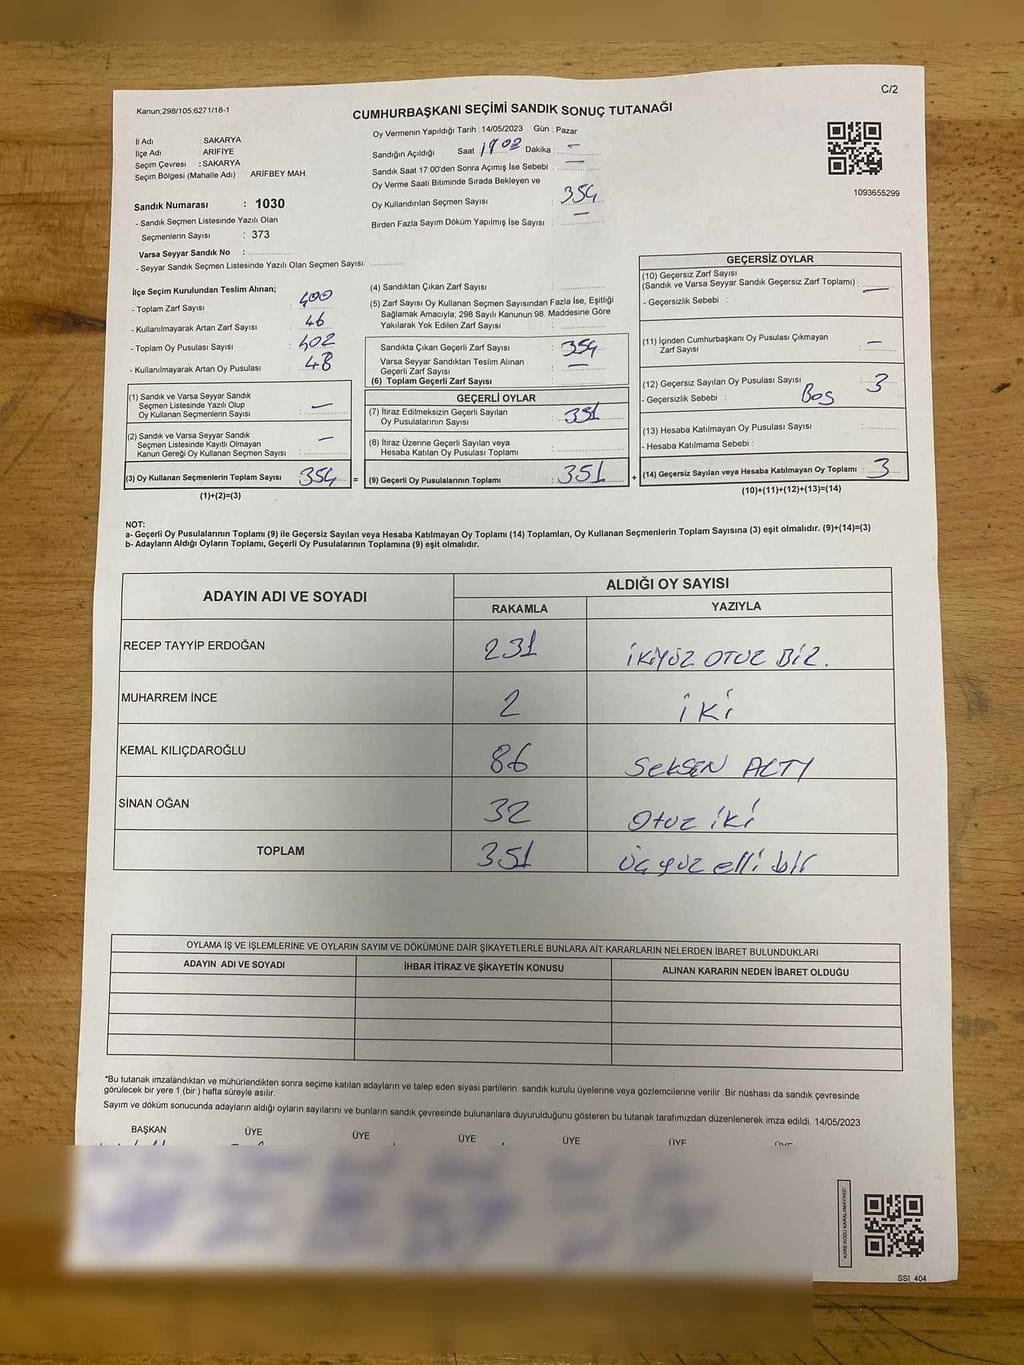 C/2
Kanun;298/105;6271/18-1
CUMHURBAŞKANI SEÇİMİ SANDIK SONUÇ TUTANAĞI
İl Adı : SAKARYA
İlçe Adı : ARİFİYE
Seçim Çevresi : SAKARYA
Seçim Bölgesi (Mahalle Adı) : ARİFBEY MAH.
Oy Vermenin Yapıldığı Tarih : 14/05/2023 Gün : Pazar
Sandığın Açıldığı Saat : Dakika : -
Sandık Saat 17:00'den Sonra Açımış İse Sebebi : -
Oy Verme Saati Bitiminde Sırada Bekleyen ve
Oy Kullandırılan Seçmen Sayısı : 354
Birden Fazla Sayım Döküm Yapılmış İse Sayısı : -
1093655299
Sandık Numarası : 1030
- Sandık Seçmen Listesinde Yazılı Olan
Seçmenlerin Sayısı : 373
Varsa Seyyar Sandık No :
- Seyyar Sandık Seçmen Listesinde Yazılı Olan Seçmen Sayısı:
İlçe Seçim Kurulundan Teslim Alınan;
- Toplam Zarf Sayısı : 400
- Kullanılmayarak Artan Zarf Sayısı : 46
- Toplam Oy Pusulası Sayısı : 402
- Kullanılmayarak Artan Oy Pusulası : 48
(1) Sandık ve Varsa Seyyar Sandık
Seçmen Listesinde Yazılı Olup
Oy Kullanan Seçmenlerin Sayısı : -
(2) Sandık ve Varsa Seyyar Sandık
Seçmen Listesinde Kayıtlı Olmayan
Kanun Gereği Oy Kullanan Seçmen Sayısı : -
(3) Oy Kullanan Seçmenlerin Toplam Sayısı : 354 =
(1)+(2)=(3)
(4) Sandıktan Çıkan Zarf Sayısı :
(5) Zarf Sayısı Oy Kullanan Seçmen Sayısından Fazla İse, Eşitliği
Sağlamak Amacıyla; 298 Sayılı Kanunun 98. Maddesine Göre
Yakılarak Yok Edilen Zarf Sayısı :
Sandıkta Çıkan Geçerli Zarf Sayısı : 354
Varsa Seyyar Sandıktan Teslim Alınan
Geçerli Zarf Sayısı : -
(6) Toplam Geçerli Zarf Sayısı :
GEÇERLİ OYLAR
(7) İtiraz Edilmeksizin Geçerli Sayılan
Oy Pusulalarının Sayısı : 351
(8) İtiraz Üzerine Geçerli Sayılan veya
Hesaba Katılan Oy Pusulası Toplamı :
(9) Geçerli Oy Pusulalarının Toplamı : 351 +
GEÇERSİZ OYLAR
(10) Geçersiz Zarf Sayısı
(Sandık ve Varsa Seyyar Sandık Geçersiz Zarf Toplamı) : -
- Geçersizlik Sebebi :
(11) İçinden Cumhurbaşkanı Oy Pusulası Çıkmayan
Zarf Sayısı : -
(12) Geçersiz Sayılan Oy Pusulası Sayısı : 3
- Geçersizlik Sebebi : Boş
(13) Hesaba Katılmayan Oy Pusulası Sayısı :
- Hesaba Katılmama Sebebi :
(14) Geçersiz Sayılan veya Hesaba Katılmayan Oy Toplamı : 3
(10)+(11)+(12)+(13)=(14)
NOT:
a- Geçerli Oy Pusulalarının Toplamı (9) ile Geçersiz Sayılan veya Hesaba Katılmayan Oy Toplamı (14) Toplamları, Oy Kullanan Seçmenlerin Toplam Sayısına (3) eşit olmalıdır. (9)+(14)=(3)
b- Adayların Aldığı Oyların Toplamı, Geçerli Oy Pusulalarının Toplamına (9) eşit olmalıdır.
ADAYIN ADI VE SOYADI
ALDIĞI OY SAYISI
RAKAMLA YAZIYLA
RECEP TAYYİP ERDOĞAN 231 İKİYÜZ OTUZ BİR.
MUHARREM İNCE 2 İKİ
KEMAL KILIÇDAROĞLU 86 SEKSEN ALTI
SİNAN OĞAN 32 Otuz iki
TOPLAM 351 Üçyüz elli bir
OYLAMA İŞ VE İŞLEMLERİNE VE OYLARIN SAYIM VE DÖKÜMÜNE DAİR ŞİKAYETLERLE BUNLARA AİT KARARLARIN NELERDEN İBARET BULUNDUKLARI
ADAYIN ADI VE SOYADI İHBAR İTİRAZ VE ŞİKAYETİN KONUSU ALINAN KARARIN NEDEN İBARET OLDUĞU
*Bu tutanak imzalandıktan ve mühürlendikten sonra seçime katılan adayların ve talep eden siyasi partilerin sandık kurulu üyelerine veya gözlemcilerine verilir. Bir nüshası da sandık çevresinde
görülecek bir yere 1 (bir) hafta süreyle asılır.
Sayım ve döküm sonucunda adayların aldığı oyların sayılarını ve bunların sandık çevresinde bulunanlara duyurulduğunu gösteren bu tutanak tarafımızdan düzenlenerek imza edildi. 14/05/2023
BAŞKAN ÜYE ÜYE ÜYE ÜYE ÜYE
KARE KODU KARALAMAYINIZ!
SSI_404